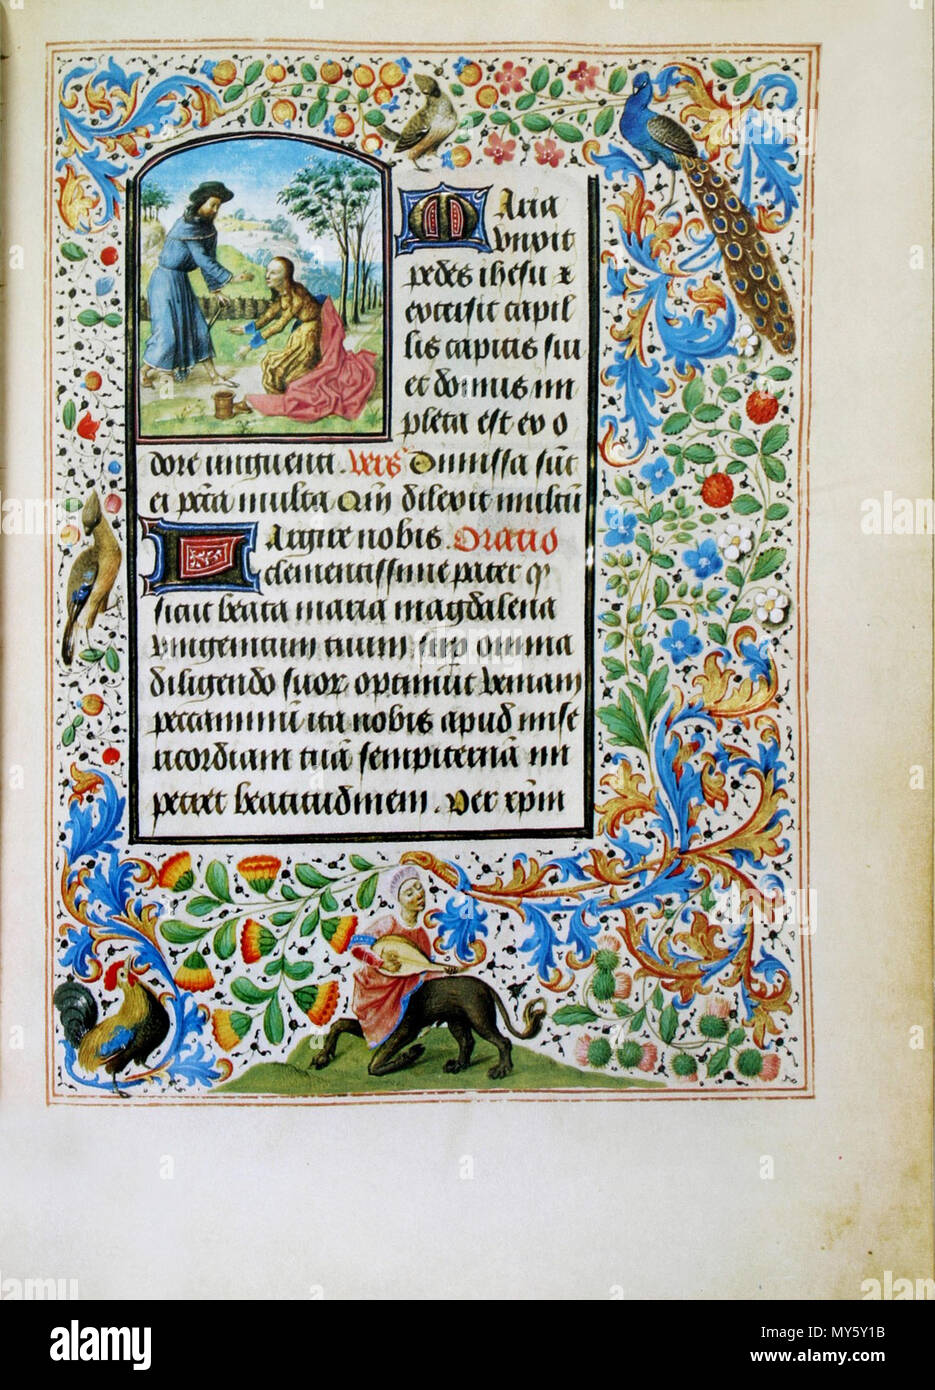 Maria
vnxit
pedes ihesu ⁊
extersit capil
lis capitis sui
et domus im
pleta est ex o
dore unguenti. Vers Dimissa sūt
ei pctā multa Qm̄ dilexit multū
Largire nobis. Oratio
clementissime pater qͥ
sicut beata maria magdalena
vnigenitum tuum sup omnia
diligendo suor optinuit veniam
peccaminū ita nobis apud mise
ricordiam tuā sempiternā im
petret beatitudinem. Per xp̄m
alamy
alamy
Image ID: MY5Y1B
www.alamy.com